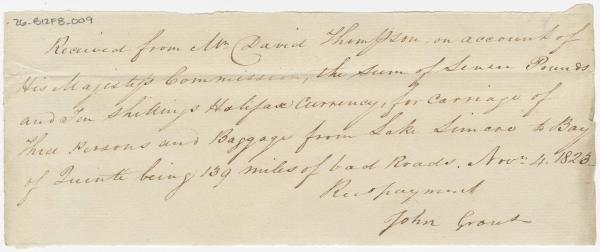 26-B12F8-009
Received from Mr. David Thompson on account of
His Majestys Commission, the Sum of Seven Pounds
and Ten Shillings Halifax Currency, for Carriage of
Three Persons and Baggage from Lake Simcoe to Bay
of Quinte being 139 miles of bad Roads. Novr. 4. 1823
Rect payment
John